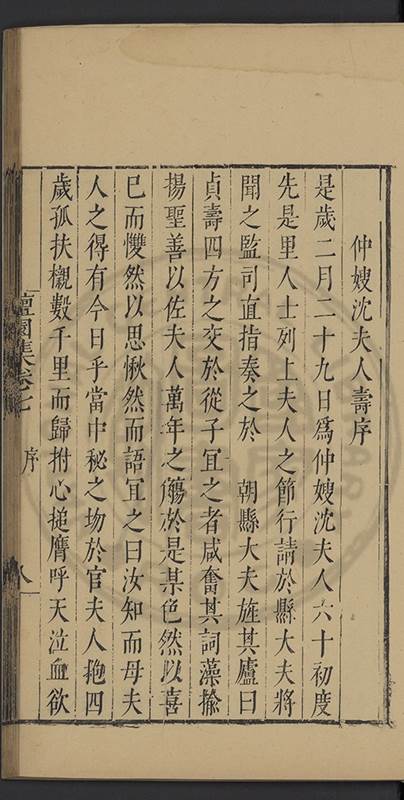 仲嫂沈夫人壽序
是歲二月二十九日爲仲嫂沈夫人六十初度
先是里人士列上夫人之節行請於縣大夫將
聞之監司直指奏之於　朝縣大夫旌其廬曰
貞壽四方之交於從子宜之者咸奮其詞藻揄
揚聖善以佐夫人萬年之觴於是某色然以喜
已而戄然以思愀然而語宜之曰汝知而母夫
人之得有今日乎當中秘之歾於官夫人抱四
歲孤扶櫬數千里而歸拊心搥膺呼天泣血欲
檀園集卷七　序　八